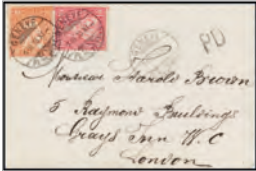 GENÈVE
GENÈVE
PD
Monsieur Harold Brown
5 Raymond Buildings
Grays Inn W. C
London